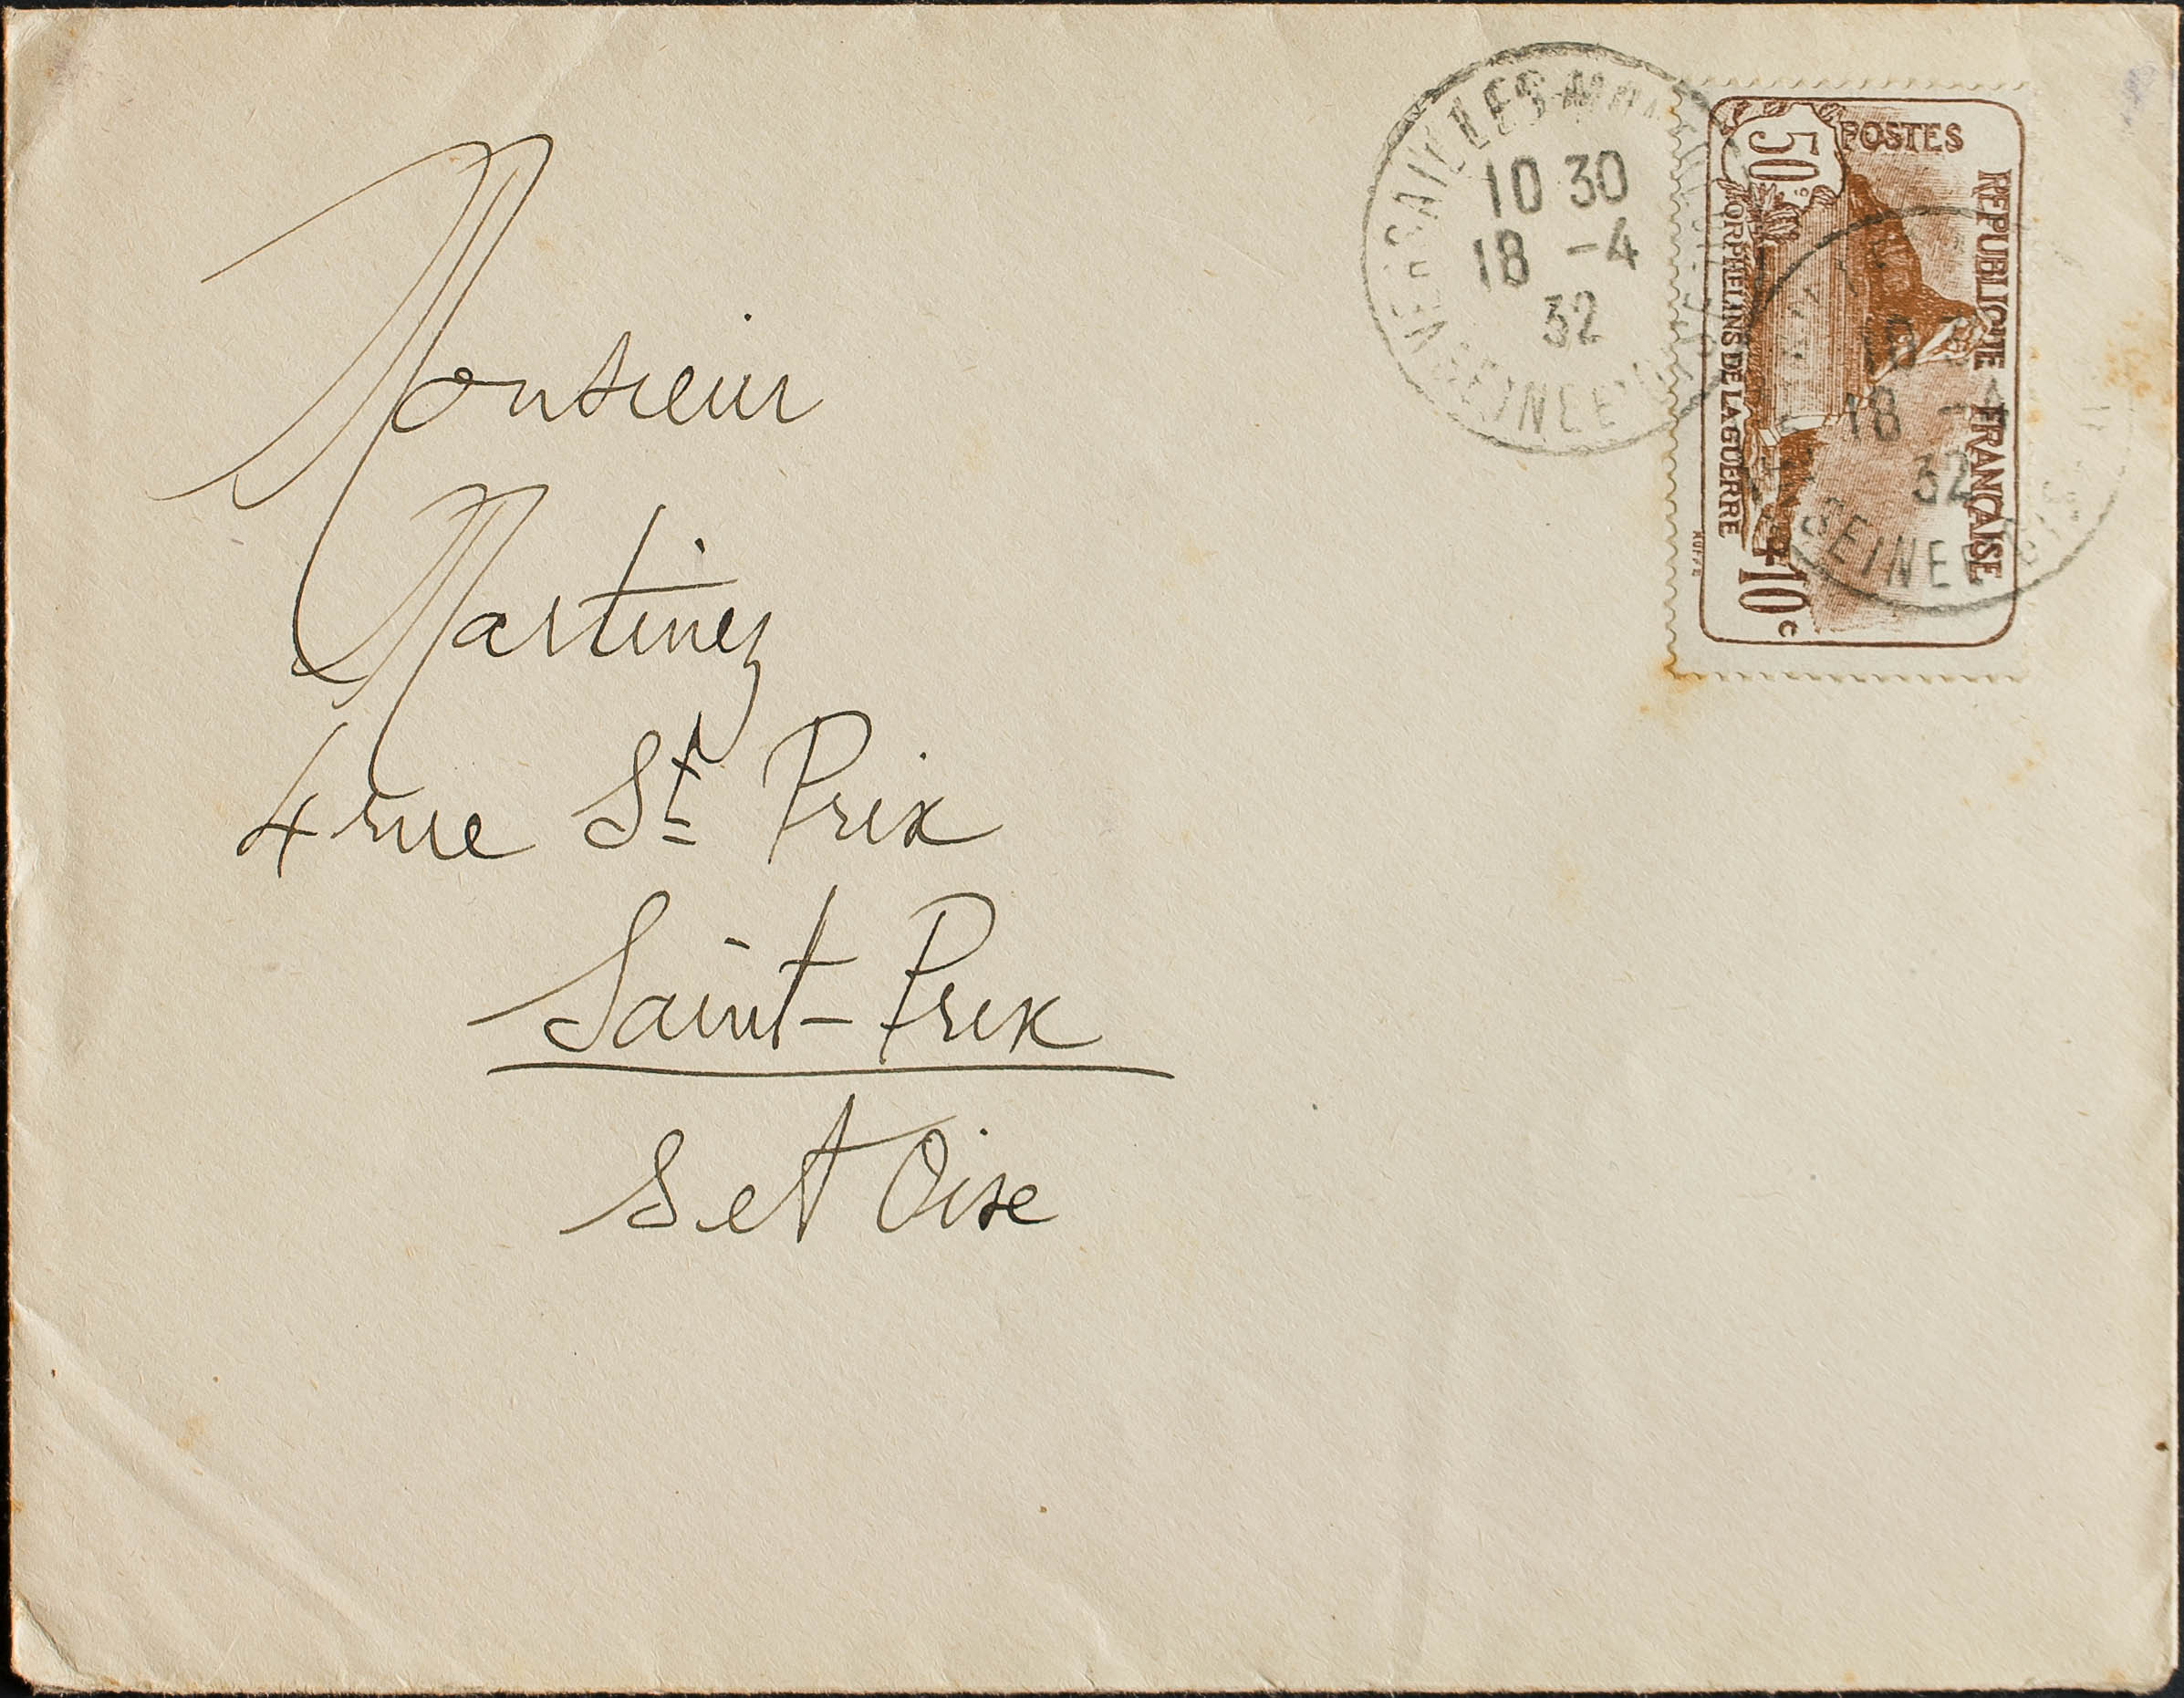 Monsieur
Martinez
4 rue St Prix
Saint-Prix
S et Oise
VERSAILLES
10 30
18 -4
32
SEINE ET OISE
POSTES
50c
REPUBLIQUE FRANÇAISE
ORPHELINS DE LA GUERRE
+10c
18 -4
32
SEINE